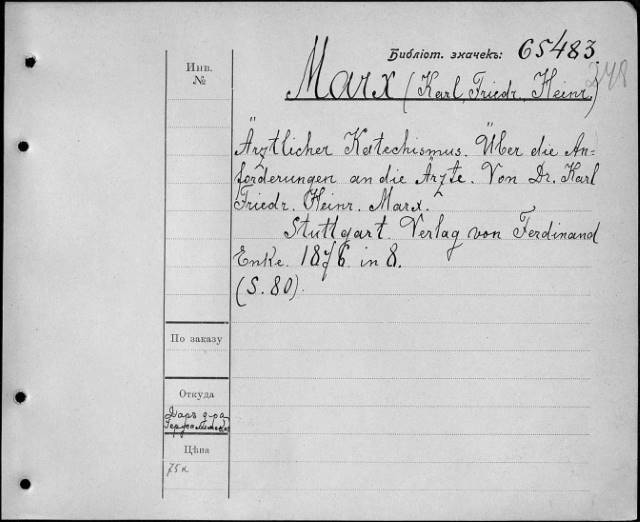 Библіот. значекъ: 65483
Инв.
№
Marx (Karl, Friedr., Heinr.)
348
Ärztlicher Katechismus. Über die An-
forderungen an die Ärzte. Von Dr. Karl
Friedr. Heinr. Marx.
Stuttgart. Verlag von Ferdinand
Enke. 1876. in 8.
(S. 80).
По заказу
Откуда
Даръ д-ра
Цѣна
75 к